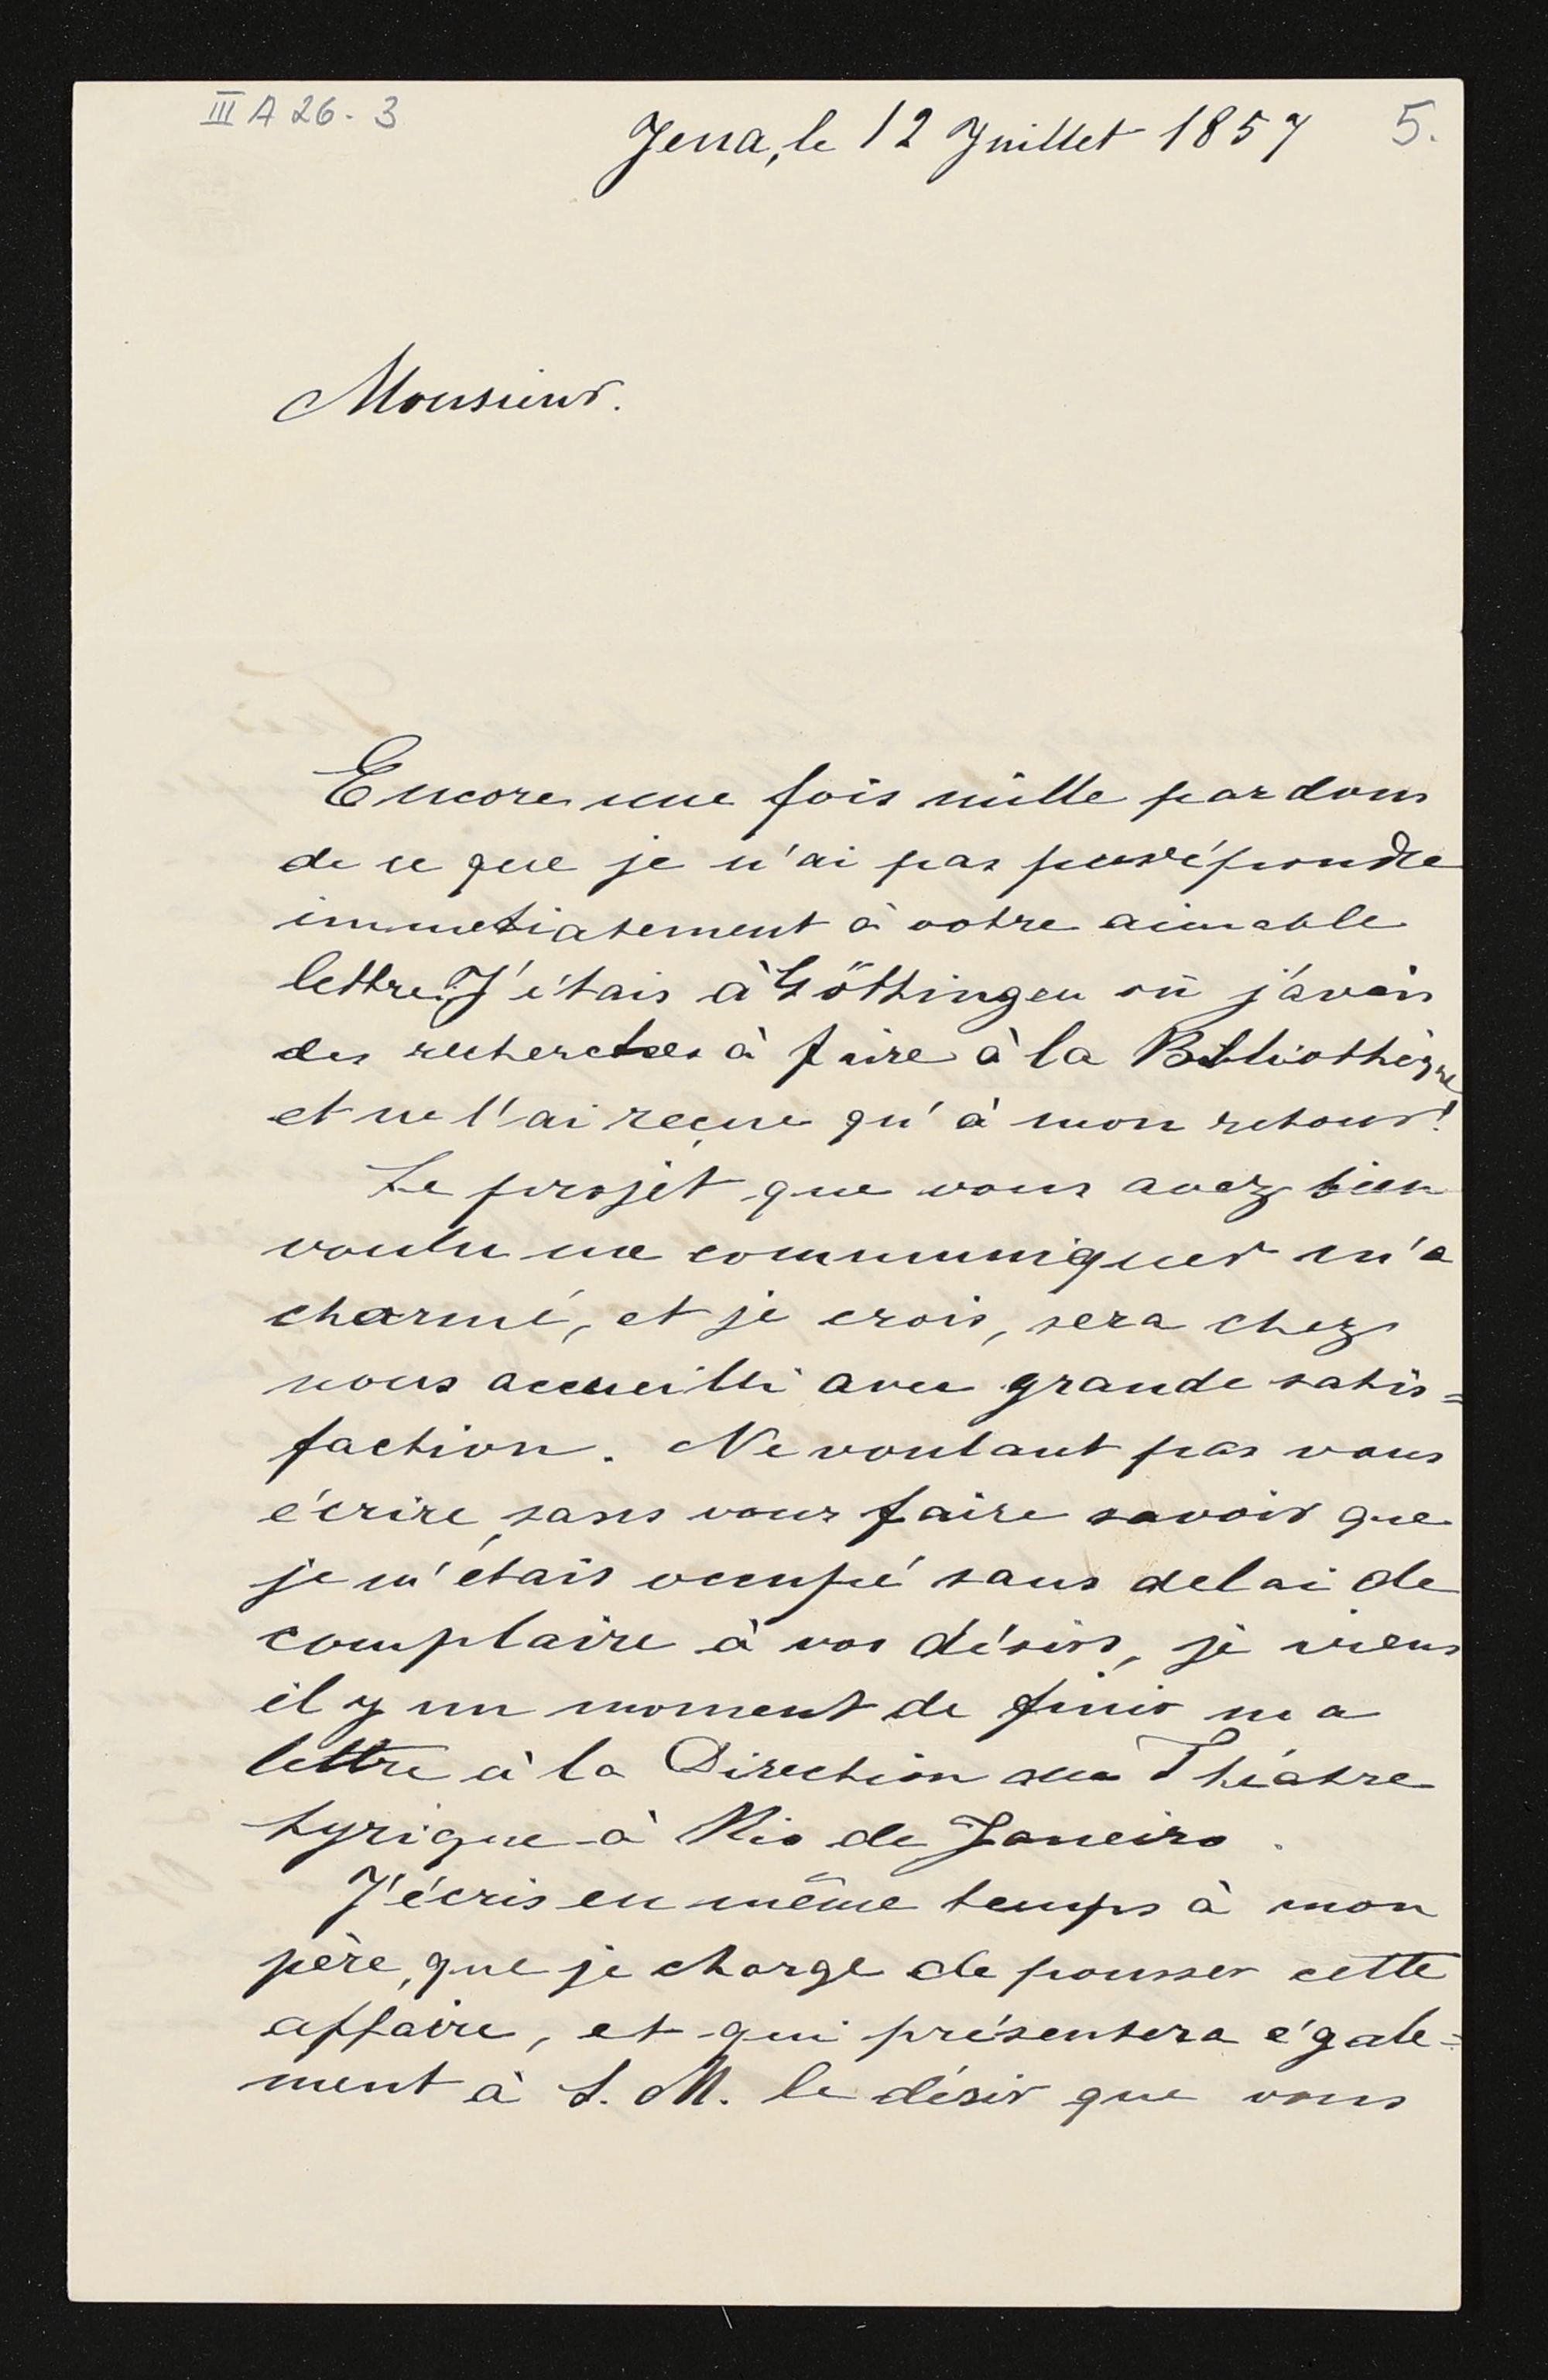 III A 26. 3
Jena, le 12 Juillet 1857
5.
Monsieur.
Encore une fois mille pardons
de ce que je n'ai pas pu répondre
immediatement à votre aimable
lettre. J'étais à Göttingen où j'avais
des recherches à faire à la Bibliothèque
et ne l'ai reçue qu'à mon retour!
Le projet que vous avez bien
voulu me communiquer m'a
charmé, et je crois, sera chez
nous accueilli avec grande satis=
faction. Ne voulant pas vous
écrire sans vous faire savoir que
je m'étais occupé sans delai de
complaire à vos désirs, je viens
il y un moment de finir ma
lettre à la Direction du Théatre
Lyrique à Rio de Janeiro.
J'écris en même temps à mon
père, que je charge de pousser cette
affaire, et qui présentera égale=
ment à S. M. le désir que vous